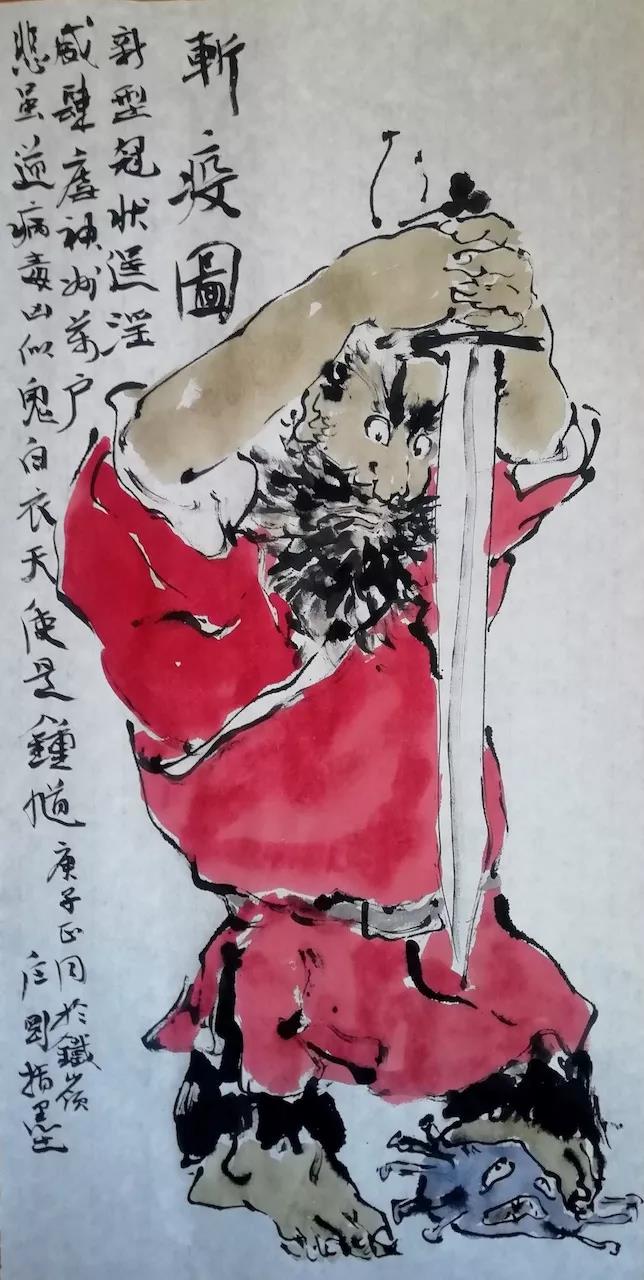 斬疫圖
新型冠状逞淫
威肆虐神州萬户
悲虽道病毒凶似鬼白衣天使是鍾馗
庚子正月於鐵嶺
剛指墨